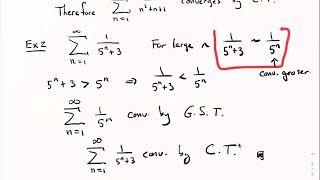 Therefore ∞ Σ n=1 1/(n²+n+1) converges by C.T.
Ex 2 ∞ Σ n=1 1/(5ⁿ+3) For large n 1/(5ⁿ+3) ~ 1/5ⁿ
conv. geoser.
5ⁿ+3 > 5ⁿ ⇒ 1/(5ⁿ+3) < 1/5ⁿ
∞ Σ n=1 1/5ⁿ conv. by G.S.T.
∞ Σ n=1 1/(5ⁿ+3) conv. by C.T.